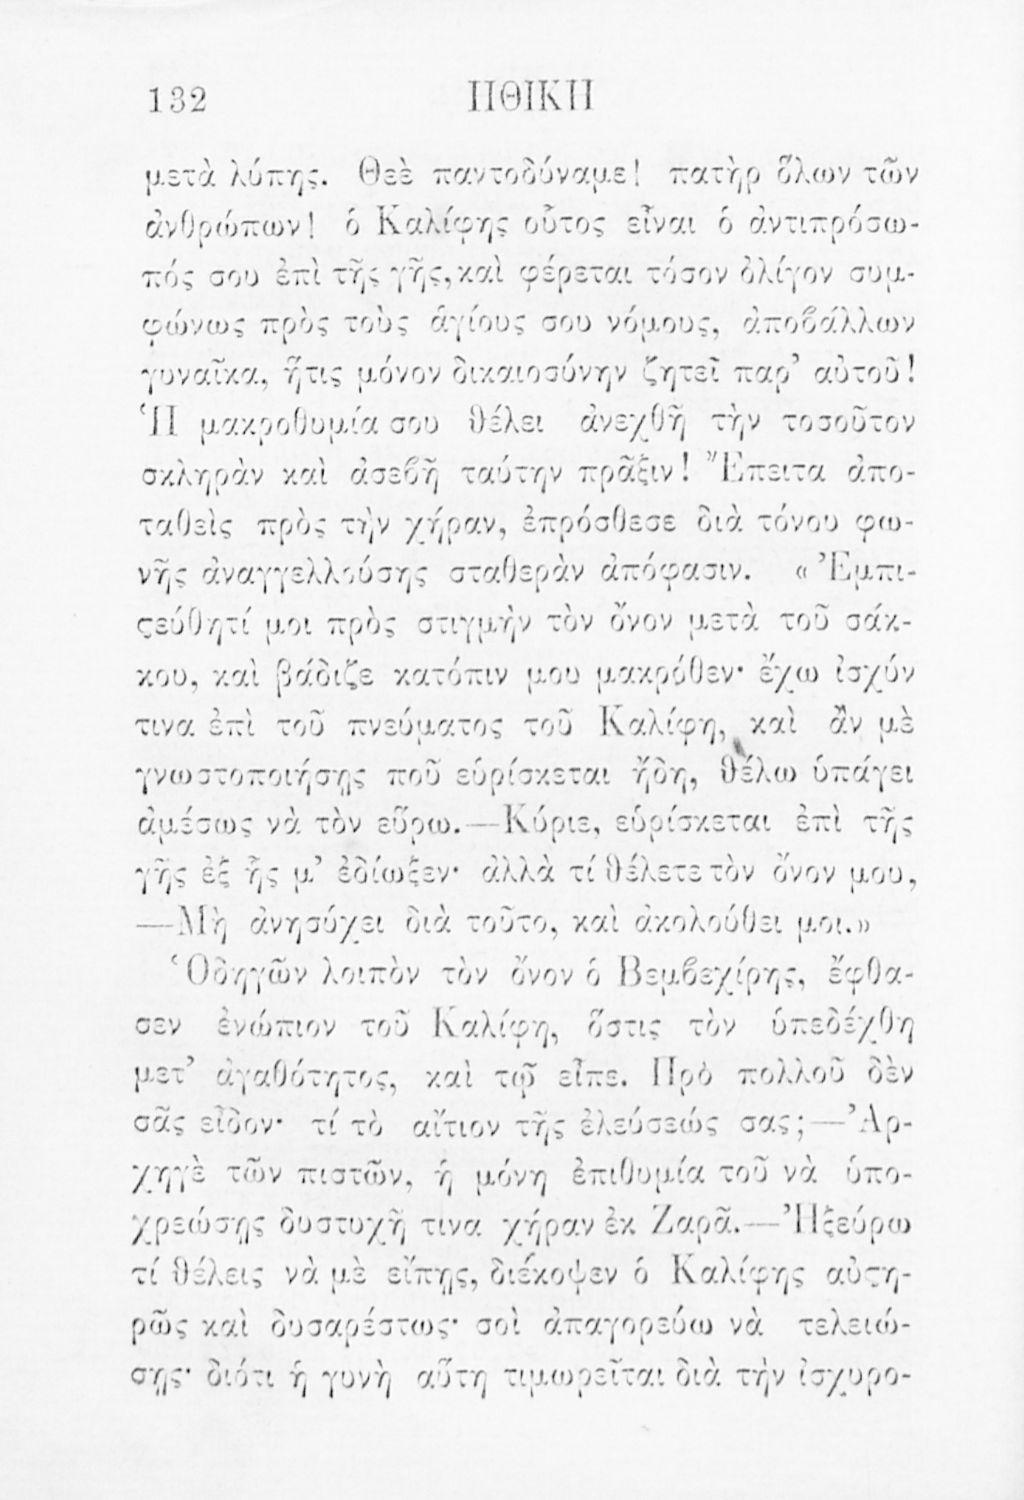 132 ΗΘΙΚΗ
μετὰ λύπης. Θεὲ παντοδύναμε! πατὴρ ὅλων τῶν
ἀνθρώπων! ὁ Καλίφης οὗτος εἶναι ὁ ἀντιπρόσω-
πός σου ἐπὶ τῆς γῆς, καὶ φέρεται τόσον ὀλίγον συμ-
φώνως πρὸς τοὺς ἁγίους σου νόμους, ἀποϐάλλων
γυναῖκα, ἥτις μόνον δικαιοσύνην ζητεῖ παρ’ αὐτοῦ!
Ἡ μακροθυμία σου θέλει ἀνεχθῆ τὴν τοσοῦτον
σκληρὰν καὶ ἀσεϐῆ ταύτην πρᾶξιν! Ἔπειτα ἀπο-
ταθεὶς πρὸς τὴν χήραν, ἐπρόσθεσε διὰ τόνου φω-
νῆς ἀναγγελλούσης σταθερὰν ἀπόφασιν. « Ἐμπι-
ϛεύθητί μοι πρὸς στιγμὴν τὸν ὄνον μετὰ τοῦ σάκ-
κου, καὶ βάδιζε κατόπιν μου μακρόθεν· ἔχω ἰσχύν
τινα ἐπὶ τοῦ πνεύματος τοῦ Καλίφη, καὶ ἂν μὲ
γνωστοποιήσῃς ποῦ εὑρίσκεται ἤδη, θέλω ὑπάγει
ἀμέσως νὰ τὸν εὕρω.—Κύριε, εὑρίσκεται ἐπὶ τῆς
γῆς ἐξ ἧς μ’ ἐδίωξεν· ἀλλὰ τί θέλετε τὸν ὄνον μου,
—Μὴ ἀνησύχει διὰ τοῦτο, καὶ ἀκολούθει μοι.»
Ὁδηγῶν λοιπὸν τὸν ὄνον ὁ Βεμϐεχίρης, ἔφθα-
σεν ἐνώπιον τοῦ Καλίφη, ὅστις τὸν ὑπεδέχθη
μετ’ ἀγαθότητος, καὶ τῷ εἶπε. Πρὸ πολλοῦ δὲν
σᾶς εἶδον· τί τὸ αἴτιον τῆς ἐλεύσεώς σας;—Ἀρ-
χηγὲ τῶν πιστῶν, ἡ μόνη ἐπιθυμία τοῦ νὰ ὑπο-
χρεώσῃς δυστυχῆ τινα χήραν ἐκ Ζαρᾶ.—Ἠξεύρω
τί θέλεις νὰ μὲ εἴπῃς, διέκοψεν ὁ Καλίφης αὐϛη-
ρῶς καὶ δυσαρέστως· σοὶ ἀπαγορεύω νὰ τελειώ-
σῃς· διότι ἡ γυνὴ αὕτη τιμωρεῖται διὰ τὴν ἰσχυρο-